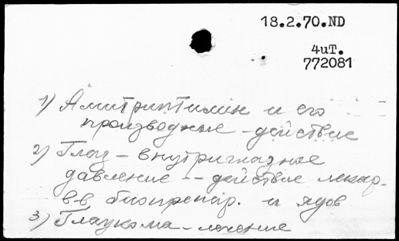 18.2.70.ND
4uT.
772081
1) Амитриптилин и его
производные - действие
2) Глаз - внутриглазное
давление -- действие лекар.
в-в биопрепар. и ядов
3) Глаукома - лечение